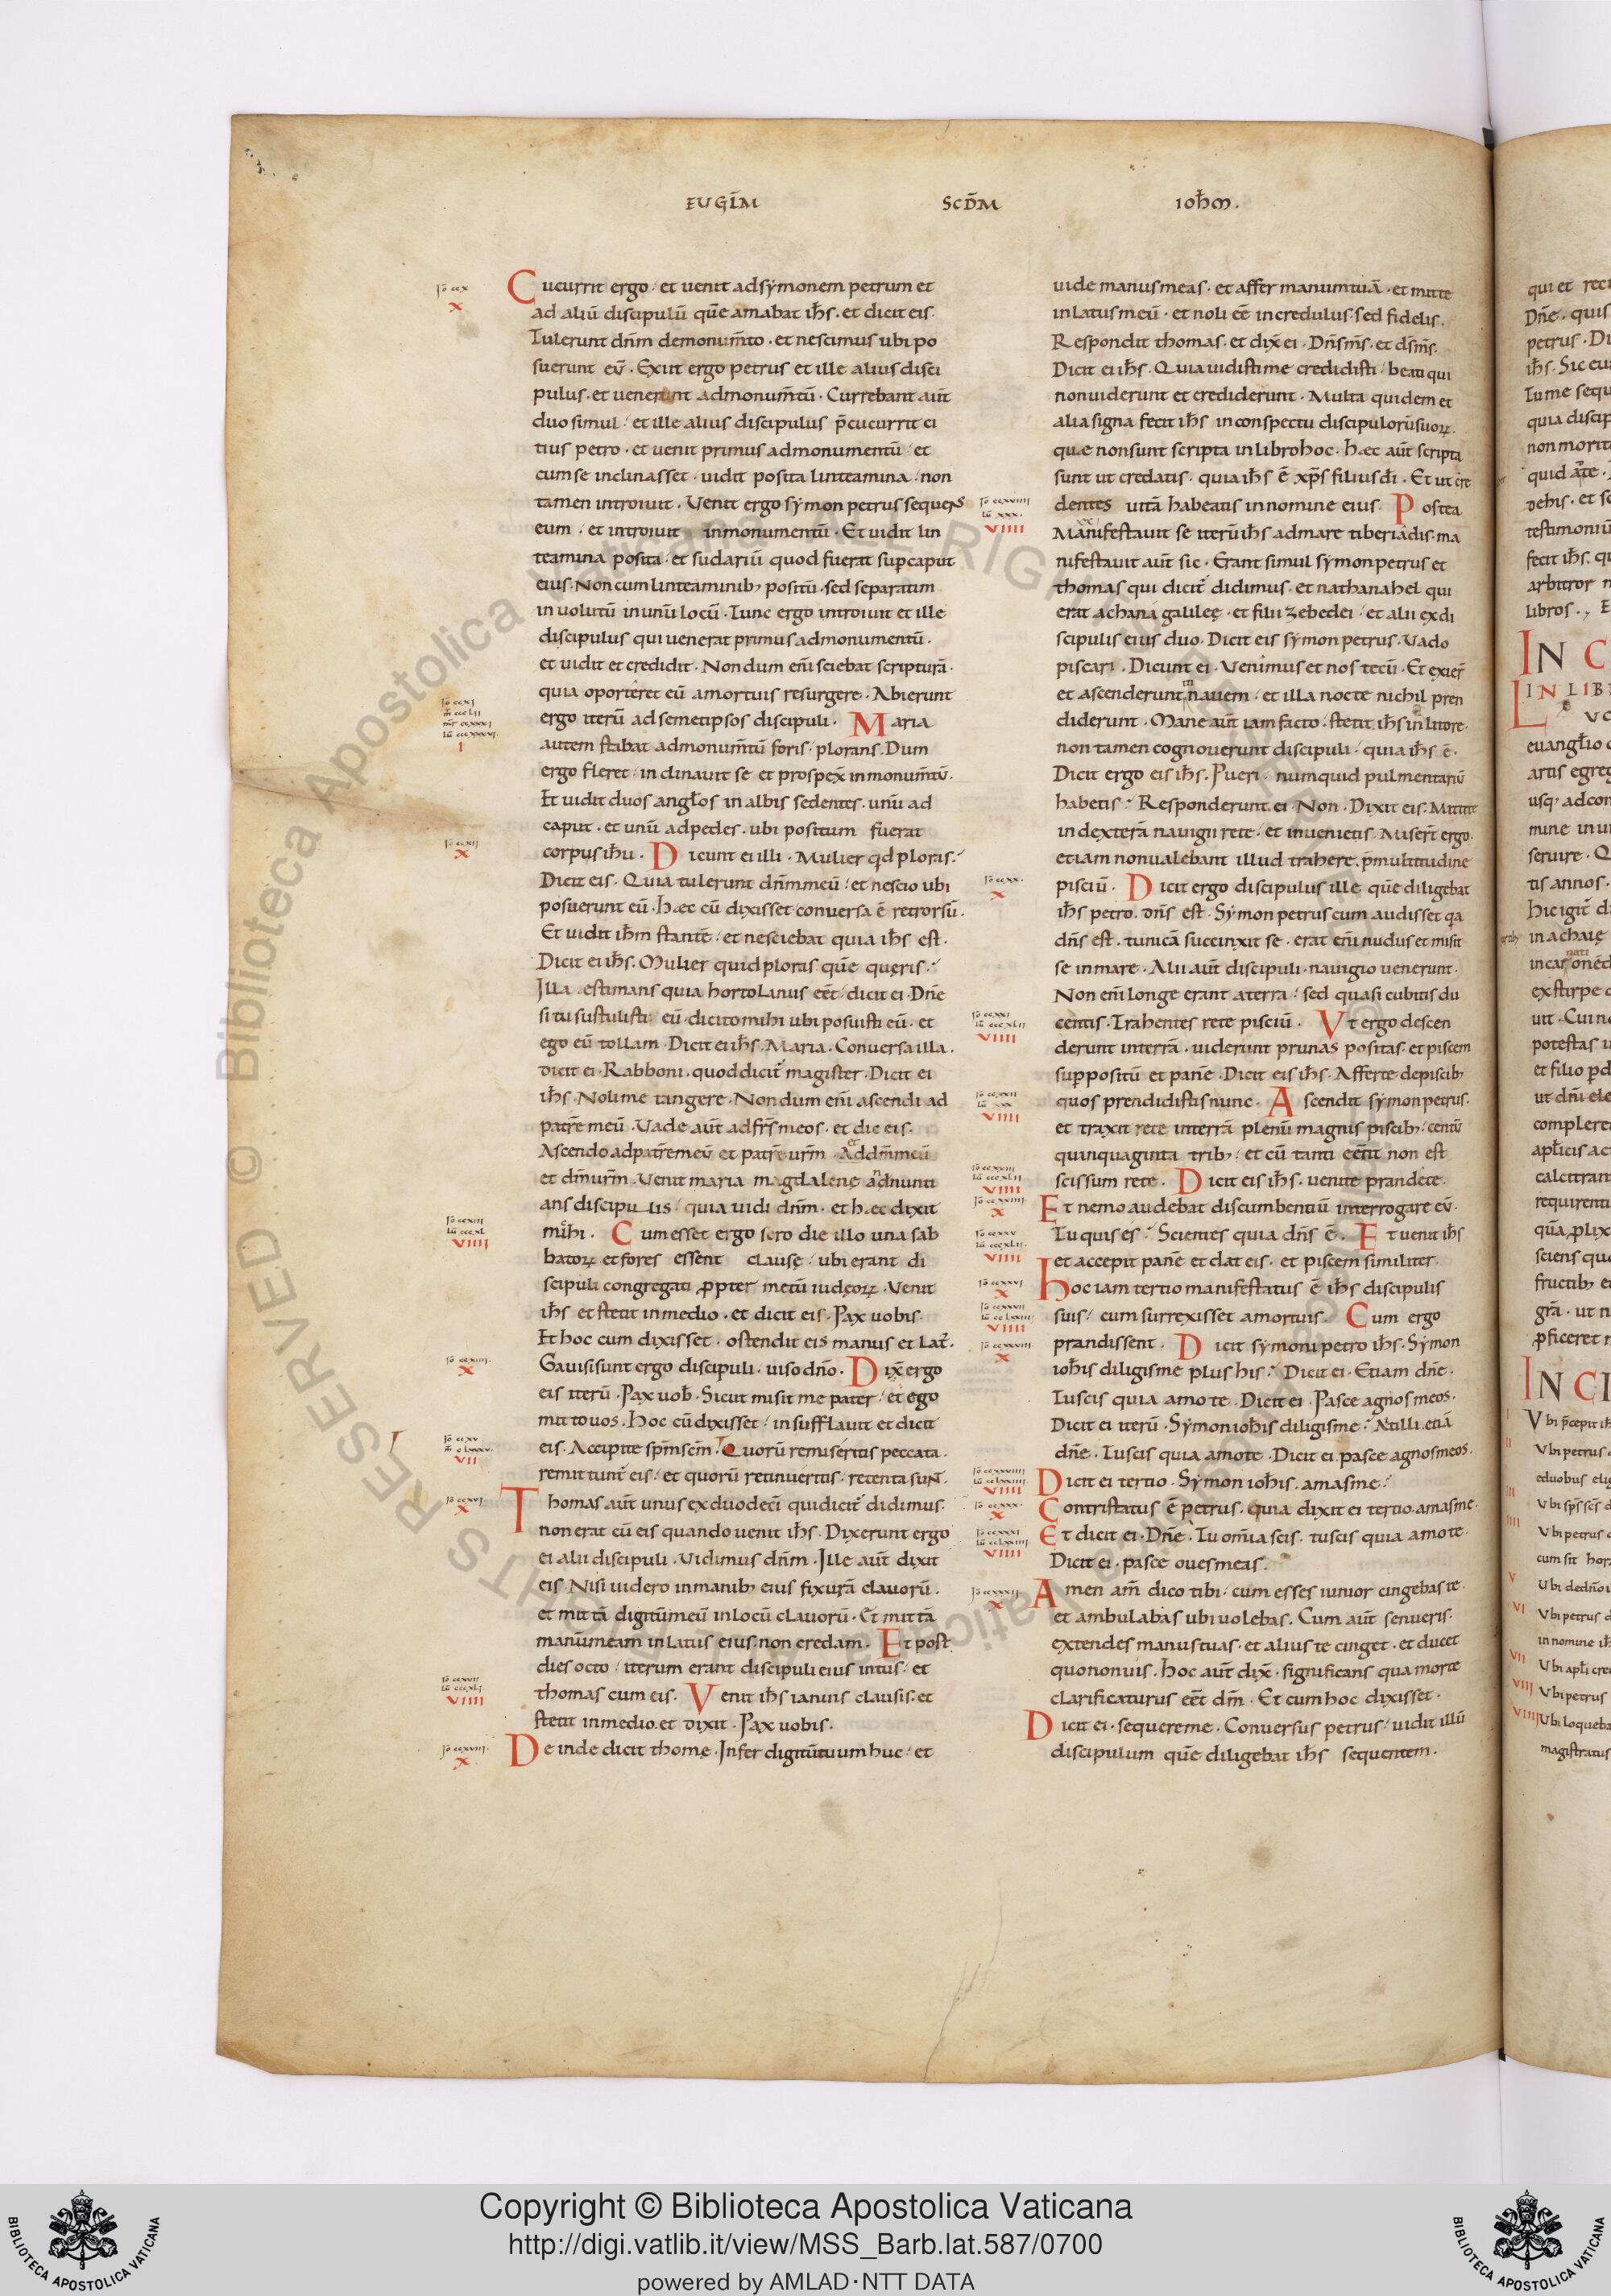 EUGL̄M SCD̄M IOH̄M.
Cucurrit ergo. et uenit ad symonem petrum et
ad aliū discipulū quē amabat ih̄s. et dicit eis.
Tulerunt dn̄m demonum̄to. et nescimus ubi po
suerunt eū. Exiit ergo petrus et ille alius disci
pulus. et uenerunt ad monum̄tū. Currebant aūt
duo simul. et ille alius discipulus p̄cucurrit ci
tius petro. et uenit primus ad monumentū. et
cum se inclinasset. uidit posita linteamina. non
tamen introiuit. Uenit ergo symon petrus sequens
eum. et introiuit in monumentū. Et uidit lin
teamina posita. et sudariū quod fuerat sup caput
eius. Non cum linteaminib; positū. sed separatim
inuolutū in unū locū. Tunc ergo introiuit et ille
discipulus qui uenerat primus ad monumentū.
et uidit et credidit. Nondum eni sciebat scripturā.
quia oporteret eū a mortuis resurgere. Abierunt
ergo iterū ad semetipsos discipuli. Maria
autem stabat ad monum̄tū foris. plorans. Dum
ergo fleret. inclinauit se et prospex̄ in monum̄tū.
Et uidit duos angl̄os in albis sedentes. unū ad
caput. et unū ad pedes. ubi positum fuerat
corpus ih̄u. Dicunt ei illi. Mulier qd ploras.
Dicit eis. Quia tulerunt dn̄m meū. et nescio ubi
posuerunt eū. Hæc cū dixisset conuersa ē retrorsū.
Et uidit ih̄m stantē. et nesciebat quia ih̄s est.
Dicit ei ih̄s. Mulier quid ploras. quē quęris.
Illa estimans quia hortolanus eēt. dicit ei. Dn̄e
si tu sustulisti eū. dicito mihi ubi posuisti eū. et
ego eū tollam. Dicit ei ih̄s. Maria. Conuersa illa.
dicit ei. Rabboni. quod dicit̄ magister. Dicit ei
ih̄s. Noli me tangere. Nondum eni ascendi ad
patrē meū. Uade aūt ad fr̄s meos. et dic eis.
Ascendo ad patrē meū et patrē ur̄m. et Ad dm̄ meū
et dm̄ ur̄m. Uenit maria magdalenę adnunti
ans discipulis. quia uidi dn̄m. et hæc dixit
mihi. Cum esset ergo sero die illo una sab
batoꝝ et fores essent clausę. ubi erant di
scipuli congregati ꝓpter metū iudęoꝝ. Uenit
ih̄s et stetit in medio. et dicit eis. Pax uobis.
Et hoc cum dixisset. ostendit eis manus et lat̄.
Gauisi sunt ergo discipuli. uiso dn̄o. Dix̄ ergo
eis iterū. Pax uob̄. Sicut misit me pater. et ego
mitto uos. Hoc cū dixisset. insufflauit et dicit
eis. Accipite sp̄m sc̄m. Quorū remiseritis peccata.
remittunt̄ eis. et quorū retinueritis. retenta sunt.
Thomas aūt unus ex duodeci qui dicit̄ didimus.
non erat cū eis quando uenit ih̄s. Dixerunt ergo
ei alii discipuli. Uidimus dn̄m. Ille aūt dixit
eis. Nisi uidero in manib; eius fixurā clauorū.
et mittā digitū meū in locū clauorū. Et mittā
manū meam in latus eius. non credam. Et post
dies octo. iterum erant discipuli eius intus. et
thomas cum eis. Venit ih̄s ianuis clausis. et
stetit in medio. et dixit. Pax uobis.
Deinde dicit thomę. Infer digitū tuum huc. et
uide manus meas. et affer manum tuā. et mitte
in latus meū. et noli eē incredulus. sed fidelis.
Respondit thomas. et dix̄ ei. Dn̄s m̄s. et ds̄ m̄s.
Dicit ei ih̄s. Quia uidisti me credidisti. beati qui
non uiderunt et crediderunt. Multa quidem et
alia signa fecit ih̄s in conspectu discipulorū suoꝝ.
quæ non sunt scripta in libro hoc. Hæc aūt scripta
sunt ut credatis. quia ih̄s ē xp̄s filius dī. Et ut cre
dentes uitā habeatis in nomine eius. Postea
Manifestauit se iterū ih̄s ad mare tiberiadis. ma
nifestauit aūt sic. Erant simul symon petrus et
thomas qui dicit̄ didimus. et nathanahel qui
erat a chana galileę. et filii zebedei. et alii ex di
scipulis eius duo. Dicit eis symon petrus. Uado
piscari. Dicunt ei. Uenimus et nos tecū. Et exier̄
et ascenderunt in nauem. et illa nocte nichil pren
diderunt. Mane aūt iam facto. stetit ih̄s in litore.
non tamen cognouerunt discipuli. quia ih̄s ē.
Dicit ergo eis ih̄s. Pueri numquid pulmentariū
habetis. Responderunt ei. Non. Dixit eis. Mittite
in dexterā nauigii rete. et inuenietis. Miser̄t ergo.
et iam non ualebant illud trahere. p̄ multitudine
pisciū. Dicit ergo discipulus ille quē diligebat
ih̄s petro. dn̄s est. Symon petrus cum audisset qa
dn̄s est. tunicā succinxit se. erat eni nudus et misit
se in mare. Alii aūt discipuli. nauigio uenerunt.
Non eni longe erant a terra. sed quasi cubitis du
centis. Trahentes rete pisciū. Vt ergo descen
derunt in terrā. uiderunt prunas positas. et piscem
suppositū et panē. Dicit eis ih̄s. Afferte de piscib;
quos prendidistis nunc. Ascendit symon petrus.
et traxit rete in terrā plenū magnis piscib;. centū
quinquaginta trib;. et cū tanti eēnt non est
scissum rete. Dicit eis ih̄s. uenite prandete.
Et nemo audebat discumbentiū interrogare eū.
Tu quis es. Scientes quia dn̄s ē. Et uenit ih̄s
et accepit panē et dat eis. et piscem similiter.
Hoc iam tertio manifestatus ē ih̄s discipulis
suis. cum surrexisset a mortuis. Cum ergo
prandissent. Dicit symoni petro ih̄s. Symon
ioh̄is diligis me plus his. Dicit ei. Etiam dn̄e.
Tu scis quia amo te. Dicit ei. Pasce agnos meos.
Dicit ei iterū. Symon ioh̄is diligis me. Ait illi. etiā
dn̄e. Tu scis quia amo te. Dicit ei. pasce agnos meos.
Dicit ei tertio. Symon ioh̄is. amas me.
Contristatus ē petrus. quia dixit ei tertio. amas me.
Et dicit ei. Dn̄e. Tu om̄ia scis. tu scis quia amo te.
Dicit ei. pasce oues meas.
Amen am̄ dico tibi. cum esses iunior cingebas te.
et ambulabas ubi uolebas. Cum aūt senueris.
extendes manus tuas. et alius te cinget. et ducet
quo non uis. Hoc aūt dix̄. significans qua morte
clarificaturus eēt dm̄. Et cum hoc dixisset.
Dicit ei. sequere me. Conuersus petrus. uidit illū
discipulum quē diligebat ih̄s sequentem.
Copyright © Biblioteca Apostolica Vaticana
http://digi.vatlib.it/view/MSS_Barb.lat.587/0700
powered by AMLAD·NTT DATA